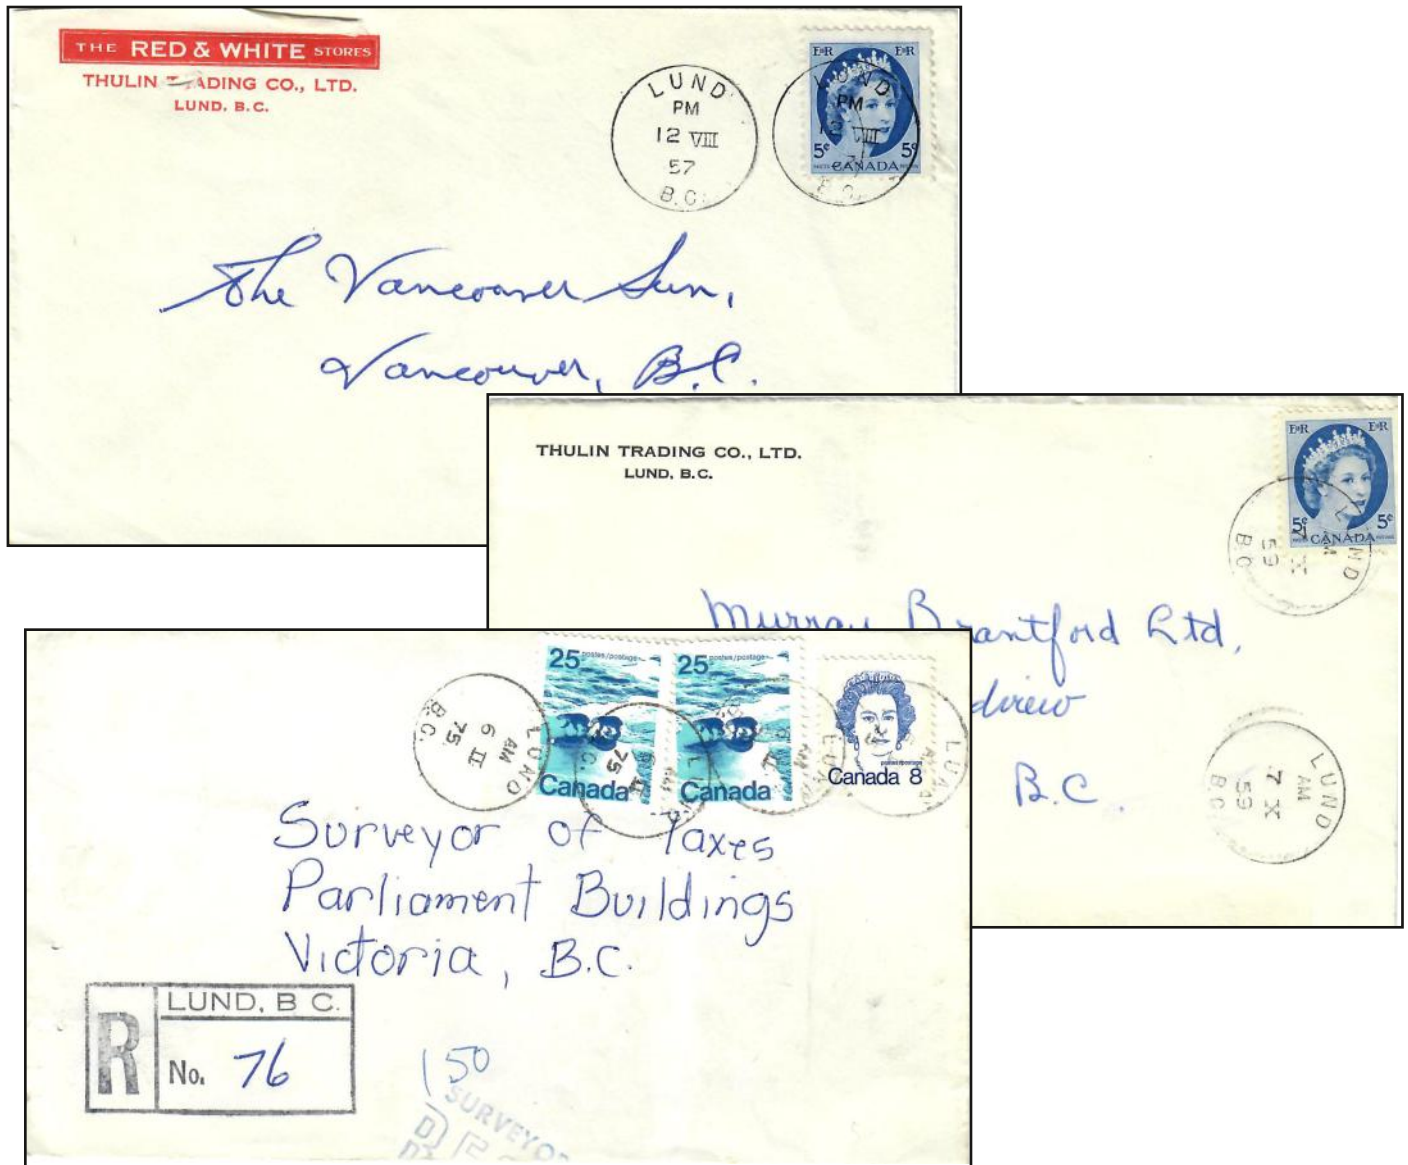 THE RED & WHITE STORES
THULIN TRADING CO., LTD.
LUND, B.C.
LUND
PM
12 VIII
57
B.C.
LUND
PM
12 VIII
B.C.
E R E R
5¢ 5¢
CANADA
The Vancouver Sun,
Vancouver, B.C.
THULIN TRADING CO., LTD.
LUND, B.C.
E R E R
5¢ 5¢
CANADA
LUND
AM
X
59
B.C
Murray Brantford Ltd,
B.C.
LUND
AM
7 X
59
B.C.
25 postes/postage
Canada
25 postes/postage
Canada
Canada 8
LUND
AM
6 II
75
B.C.
Surveyor of Taxes
Parliament Buildings
Victoria, B.C.
R
LUND, B C.
No. 76
150
SURVEYO